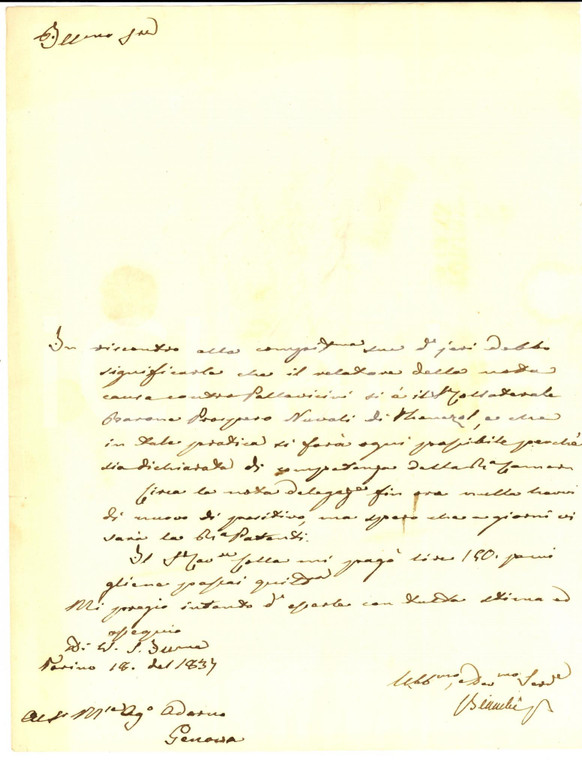 Illmo Sre
In riscontro alla compitma sua d'jeri debbo
significarle che il relatore della nota
causa contro Pallavicini si è il Sr Collaterale
Barone Prospero Nuvoli di Thenezol, e che
in tale pratica si farà ogni possibile perchè
sia dichiarata di competenza della Ra Camera
Circa la nota delegazne fin ora nulla havvi
di nuovo di positivo, ma spero che a giorni vi
sarà la Ra Patenti.
Il Sr Cavre Colla mi pagò lire 150. per cui
gliene passai quittza
Mi pregio intanto d'esserle con tutta stima ed
ossequio
Di V. S. Illma
Torino 18. del 1837
Obbmo, e Devmo Serve
Bianchi
Al Sr Mse Ago Adorno
Genova